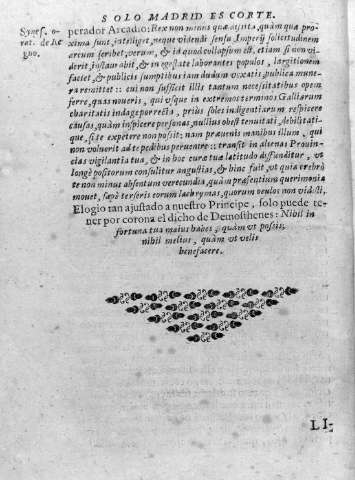 SOLO MADRID ES CORTE.
Synes. o-
rat. de Re
gno.
perador Arcadio: Rex non menus quæ adsita, quàm quæ pro
xima sunt, intelliget, neque videndi sensu Imperij solicitudinem
arcum scribet, verum, & id quod collapsum est, etiam si non vi-
derit, instaurabit, & in egestate laborantes populos, largitionem
faciet, & publicis sumptibus iam dudum vexatis, publica mune-
ra remittet :: cui non suffecit illis tantum necessitatibus opem
ferre, quas noueris, qui vsque in extremos terminos Galliarum
charitatis indage porrecta, prius soles indigentiarum respicere
causas, quàm inspicere personas, nullius obest tenuitati, debilitati-
que, si te expetere non possit: nam præuenis manibus illum, qui
non voluerit ad te pedibus peruenire :: transit in alienas Prouin-
cias vigilantia tua, & in hoc curæ tuæ latitudo diffunditur, vt
longè positorum consulitur angustias, & hinc fuit, vt quia crebrò
te non minus absentum verecundia, quàm præsentium querimonia
mouet, sæpè terseris eorum lachrymas, quarum oculos non vidisti,
Elogio tan ajustado a nuestro Principe, solo puede te-
ner por corona el dicho de Demosthenes: Nihil in
fortuna tua maius habes, quàm vt possis,
nihil melius, quàm vt velis
benefacere.
LI-